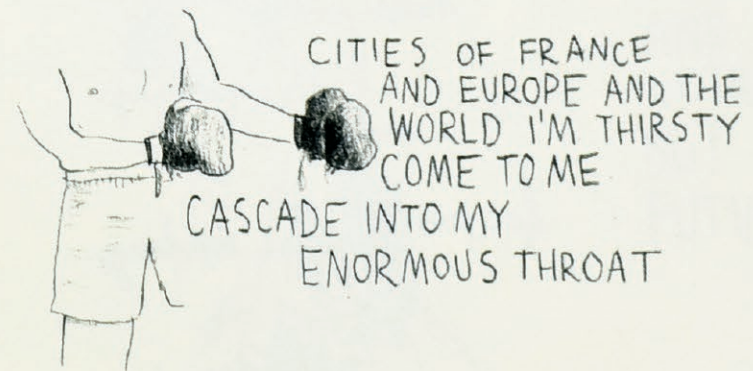 CITIES OF FRANCE
AND EUROPE AND THE
WORLD I'M THIRSTY
COME TO ME
CASCADE INTO MY
ENORMOUS THROAT